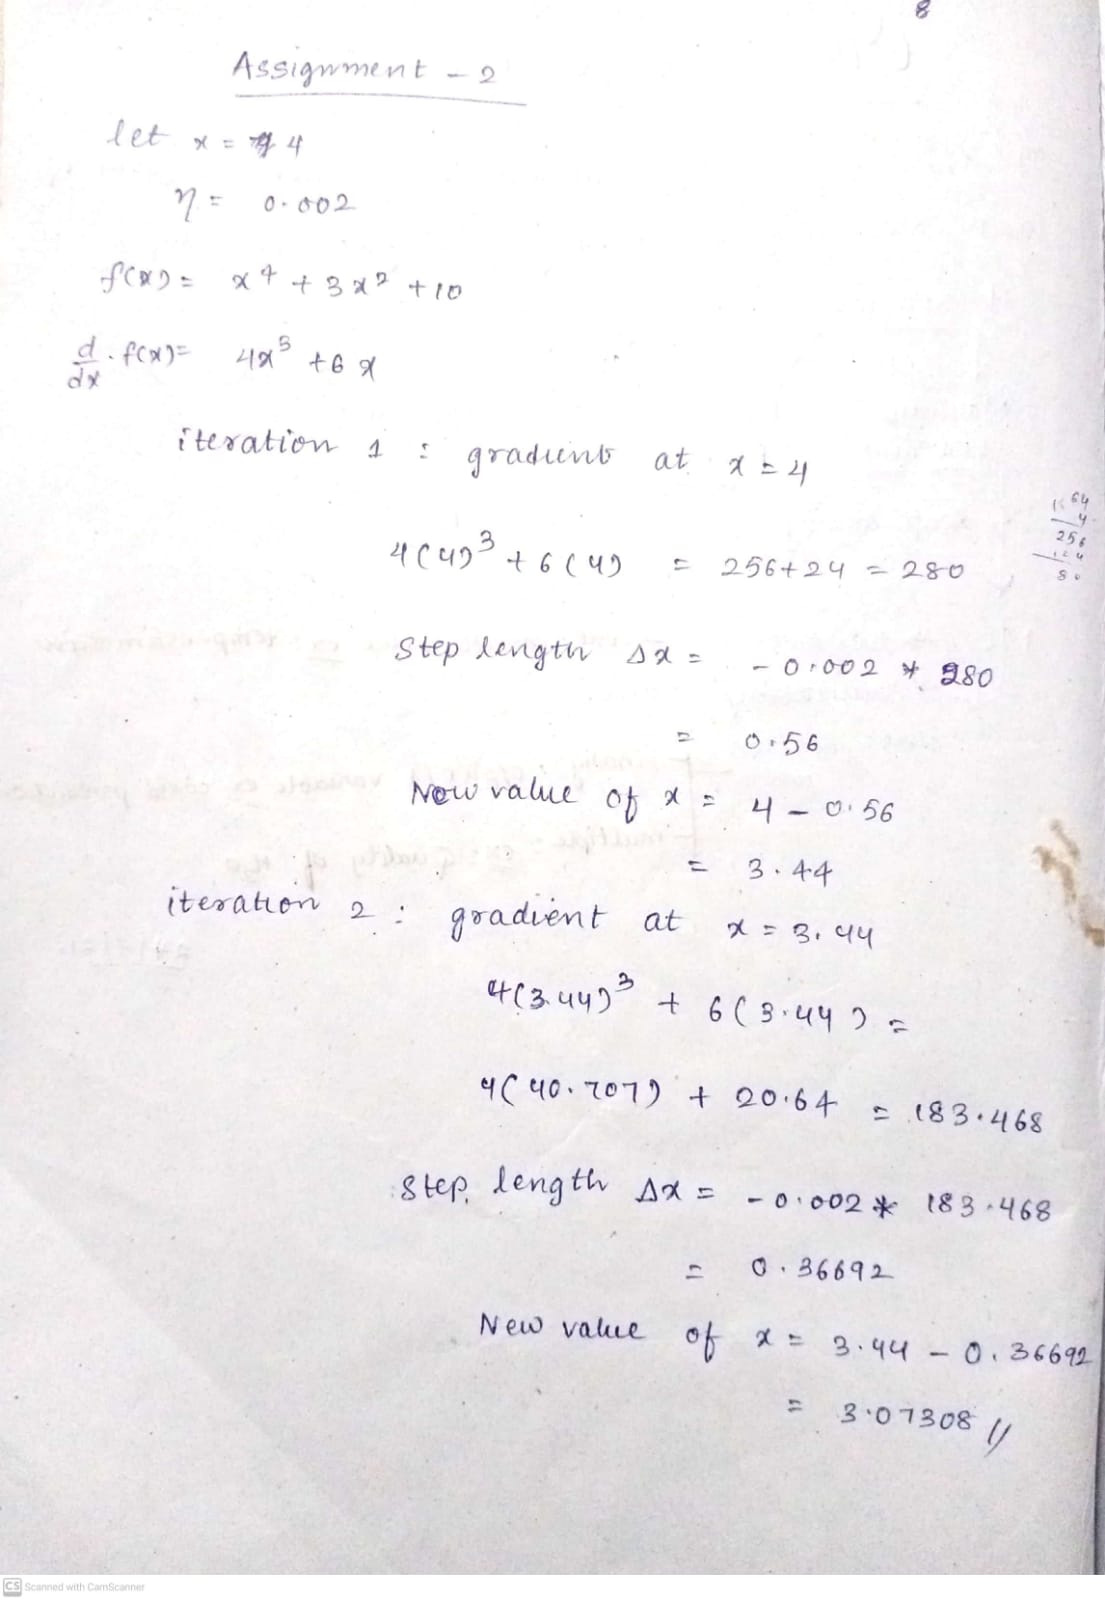 8
Assignment - 2
let x = 4
η = 0.002
f(x) = x⁴ + 3x² + 10
d/dx . f(x) = 4x³ + 6x
iteration 1 : gradient at x = 4
64
4
256
24
80
4(4)³ + 6(4) = 256 + 24 = 280
Step length Δx = - 0.002 * 280
= 0.56
New value of x = 4 - 0.56
= 3.44
iteration 2 : gradient at x = 3.44
4(3.44)³ + 6(3.44) =
4(40.707) + 20.64 = 183.468
Step length Δx = - 0.002 * 183.468
= 0.36692
New value of x = 3.44 - 0.36692
= 3.07308 //
CS Scanned with CamScanner